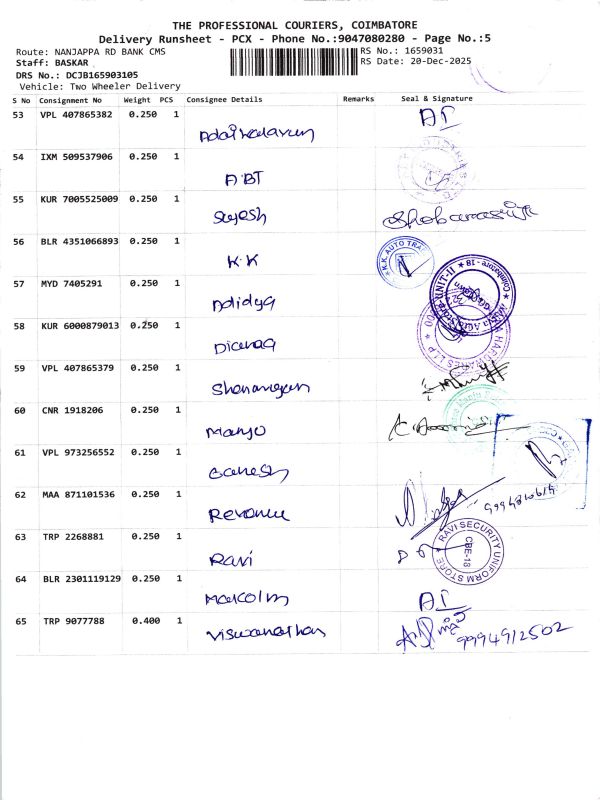 THE PROFESSIONAL COURIERS, COIMBATORE
Delivery Runsheet - PCX - Phone No.:9047080280 - Page No.:5
Route: NANJAPPA RD BANK CMS RS No.: 1659031
Staff: BASKAR RS Date: 20-Dec-2025
DRS No.: DCJB165903105
Vehicle: Two Wheeler Delivery
S No Consignment No Weight PCS Consignee Details Remarks Seal & Signature
53 VPL 407865382 0.250 1
54 IXM 509537906 0.250 1
A BT
55 KUR 7005525009 0.250 1
Sujesh
56 BLR 4351066893 0.250 1
K.K K.K. AUTO TRA
57 MYD 7405291 0.250 1
58 KUR 6000879013 0.250 1
HARDWARES LLP
59 VPL 407865379 0.250 1
60 CNR 1918206 0.250 1
Manju
61 VPL 973256552 0.250 1
Ganesh
62 MAA 871101536 0.250 1
Revenue
63 TRP 2268881 0.250 1
Ravi RAVI SECURITY UNIFORM STORE CBE-18
64 BLR 2301119129 0.250 1
Malcolm
65 TRP 9077788 0.400 1
Viswanathan 9994912502